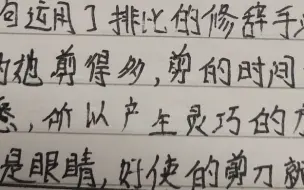 句运用了排比的修辞手
的她剪得多,剪的时间
悉,所以产生灵巧的
是眼睛,好使的剪刀